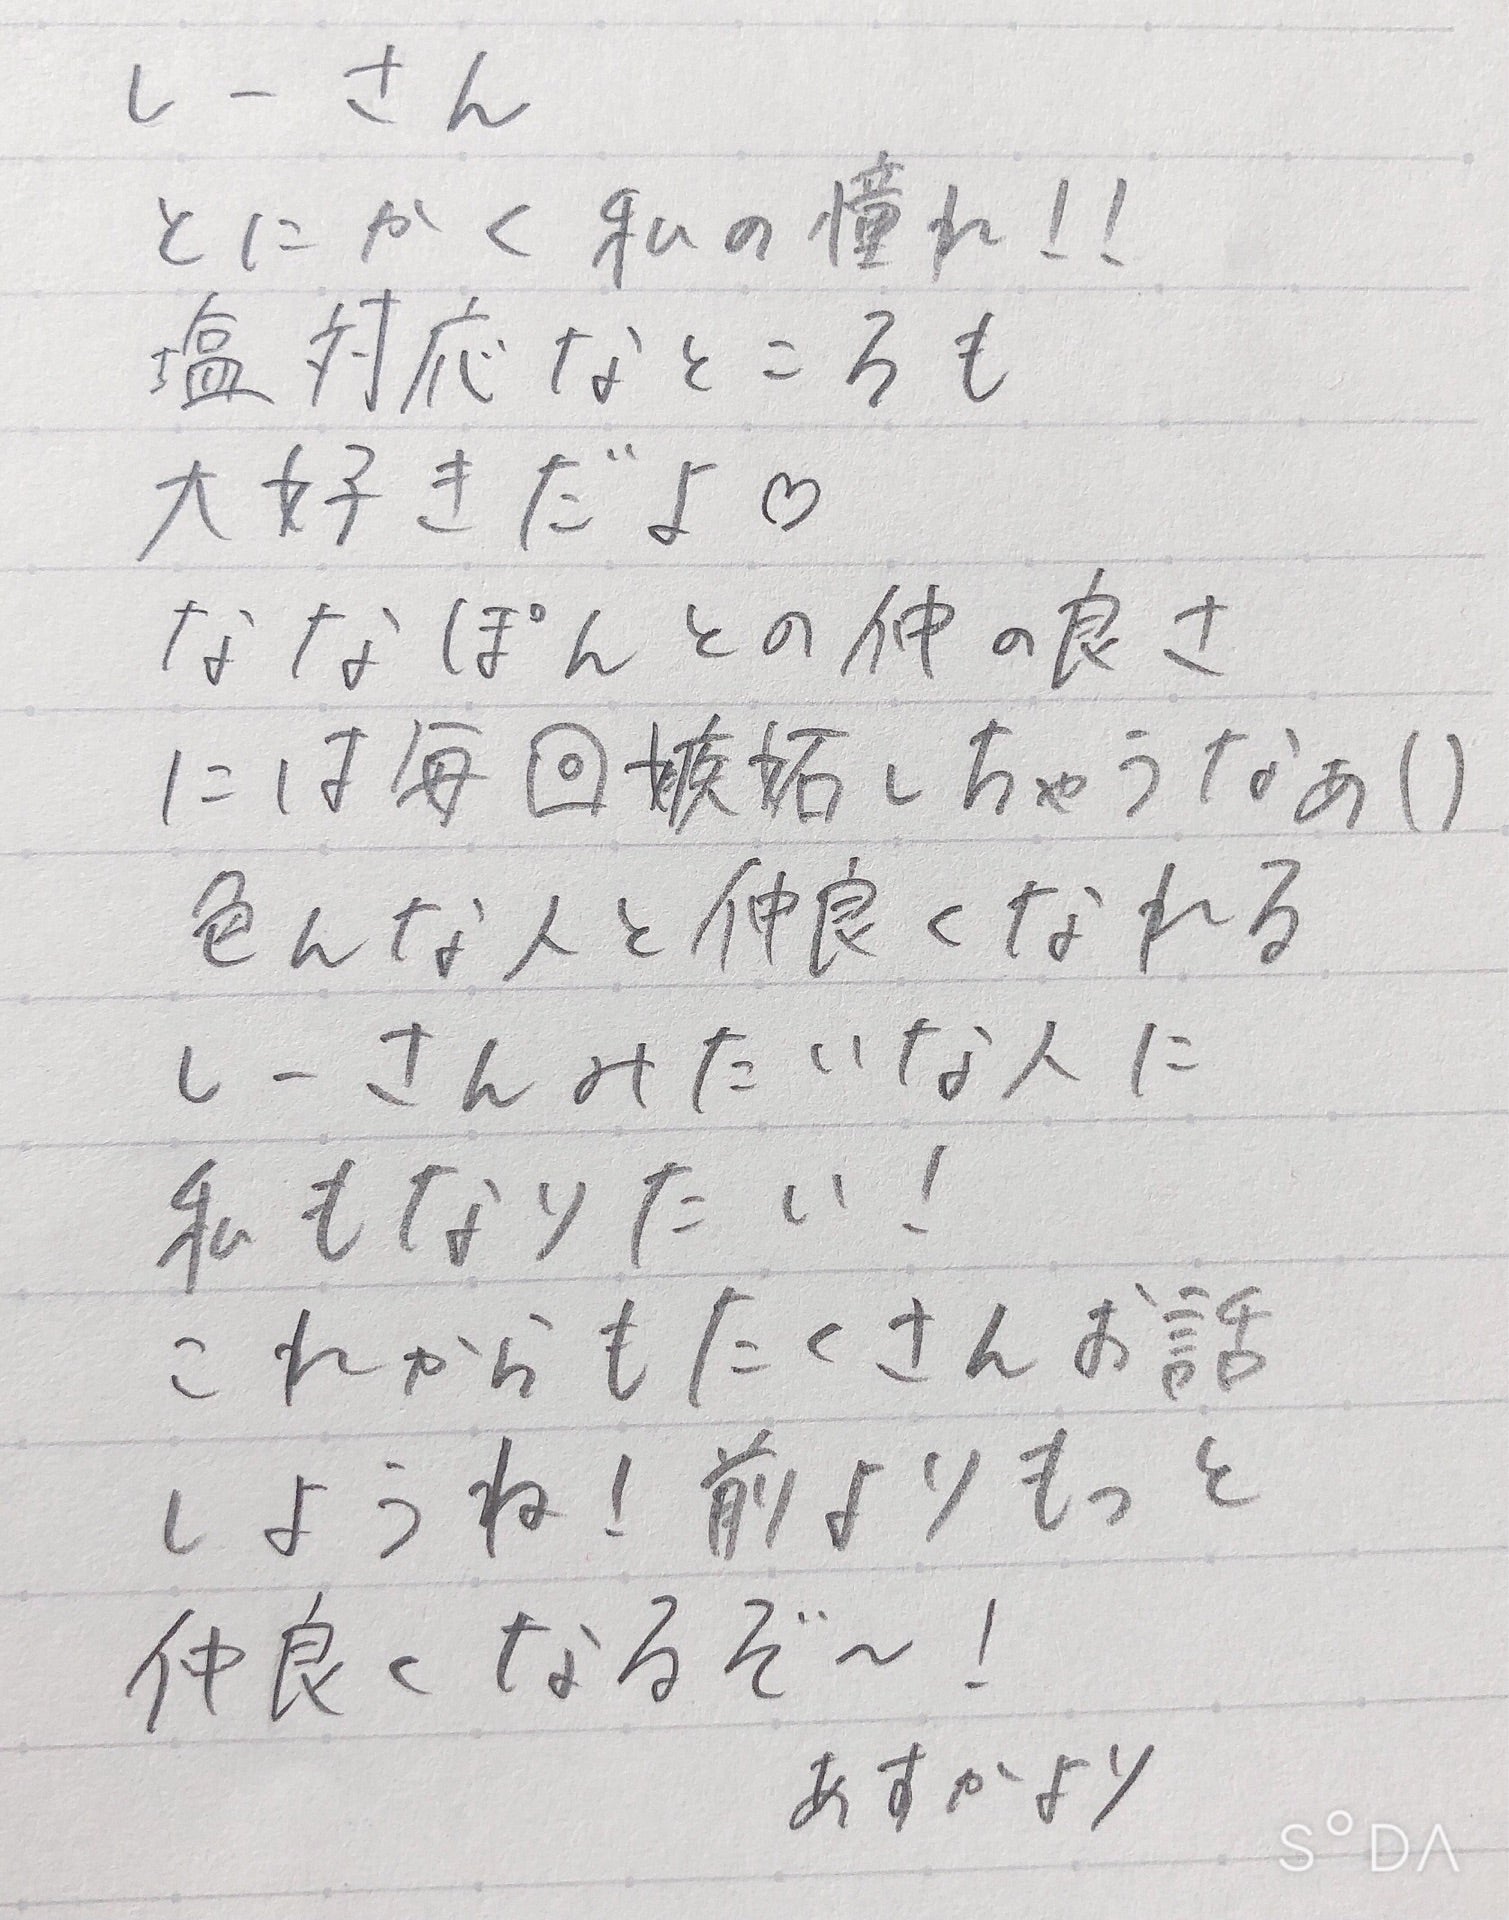 しーさん
とにかく私の憧れ!!
塩対応なところも
大好きだよ♡
ななぽんとの仲の良さ
には毎回嫉妬しちゃうなぁ()
色んな人と仲良くなれる
しーさんみたいな人に
私もなりたい!
これからもたくさんお話
しようね!前よりもっと
仲良くなるぞ〜!
あすかより
SODA